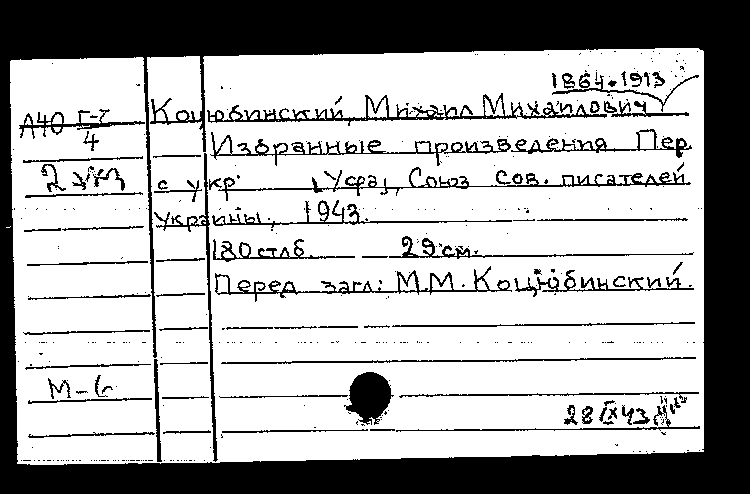 1864-1913
А40 Г-7 Коцюбинский, Михаил Михайлович
4 Избранные произведения Пер.
2 укз с укр. [Уфа], Союз сов. писателей
Украины, 1943.
180 стлб. 29 см.
Перед загл: М.М. Коцюбинский.
М-6
28 IX 43